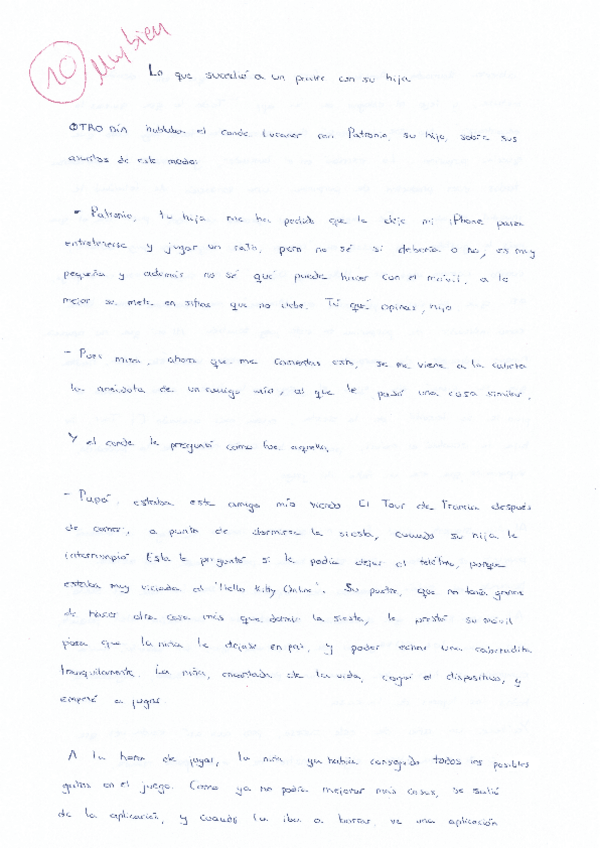 10 Muy bien
Lo que sucedió a un padre con su hija
OTRO DÍA hablaba el conde Lucanor con Patronio, su hijo, sobre sus
asuntos de este modo:
- Patronio, tu hija me ha pedido que le deje mi iPhone para
entretenerse y jugar un rato, pero no sé si debería o no, es muy
pequeña y además no sé qué puede hacer con el móvil, a lo
mejor se mete en sitios que no debe. Tú qué opinas, hijo
- Pues mira, ahora que me comentas esto, se me viene a la cabeza
la anécdota de un amigo mío, al que le pasó una cosa similar.
Y el conde le preguntó como fue aquello.
- Papá, estaba este amigo mío viendo El Tour de Francia después
de comer, a punto de dormirse la siesta, cuando su hija le
interrumpió. Esta le preguntó si le podía dejar el teléfono, porque
estaba muy viciada al "Hello Kitty Online". Su padre, que no tenía ganas
de hacer otra cosa más que dormir la siesta, le prestó su móvil
para que la niña le dejase en paz, y poder echar una cabezadita
tranquilamente. La niña, encantada de la vida, cogió el dispositivo, y
empezó a jugar.
A la hora de jugar, la niña ya había conseguido todos los posibles
gatos en el juego. Como ya no podía mejorar más cosas, se salió
de la aplicación, y cuando la iba a borrar, ve una aplicación